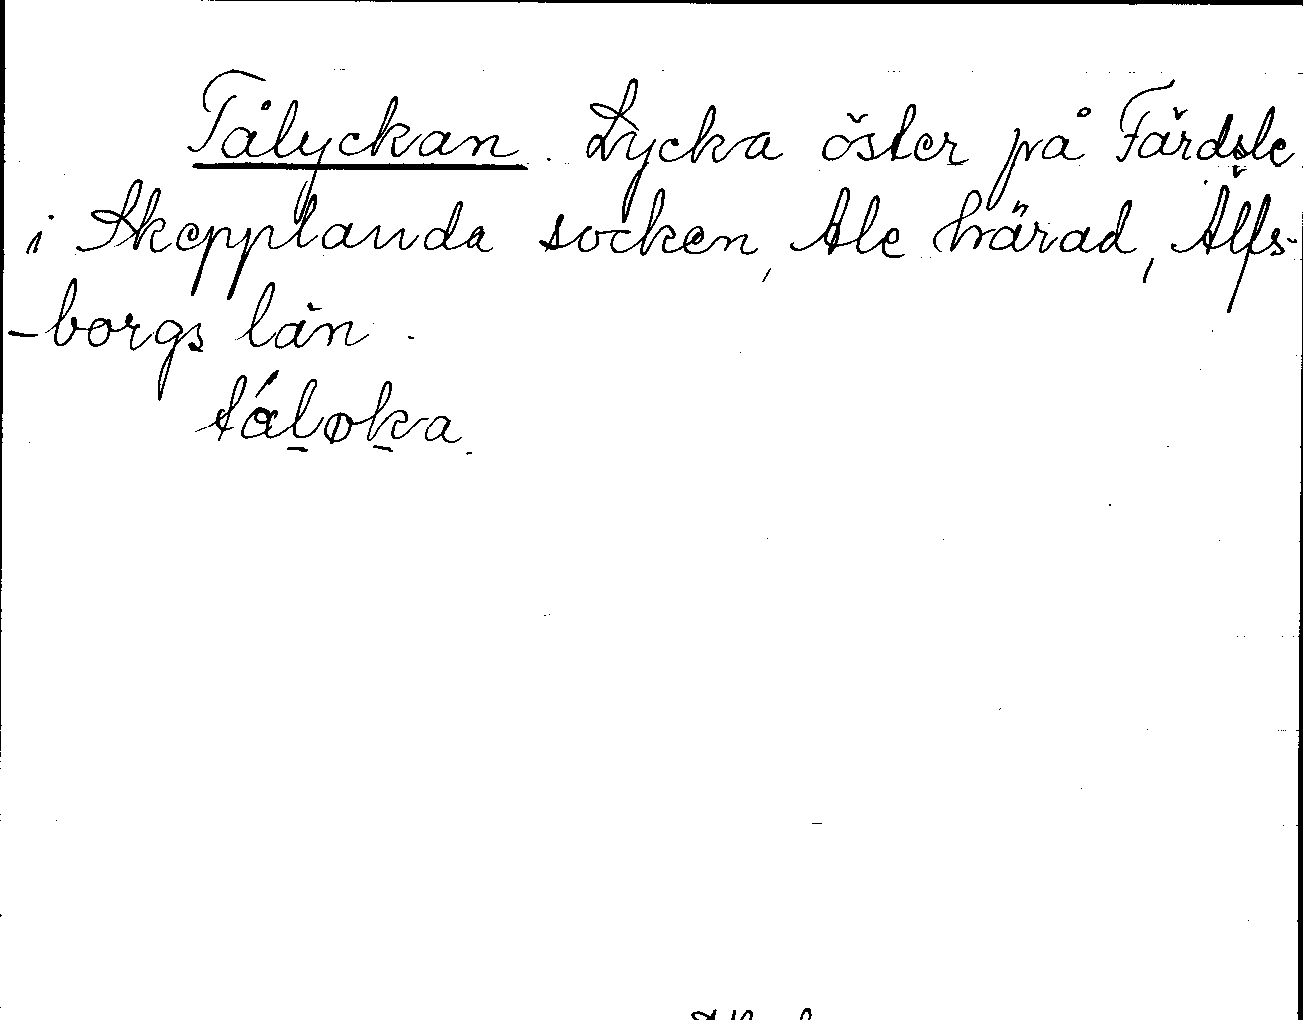 Tålyckan. Lycka öster på Färdsle
i Skepplanda socken, Ale härad, Älfs-
-borgs län.
tá̊l̠øk̠a.